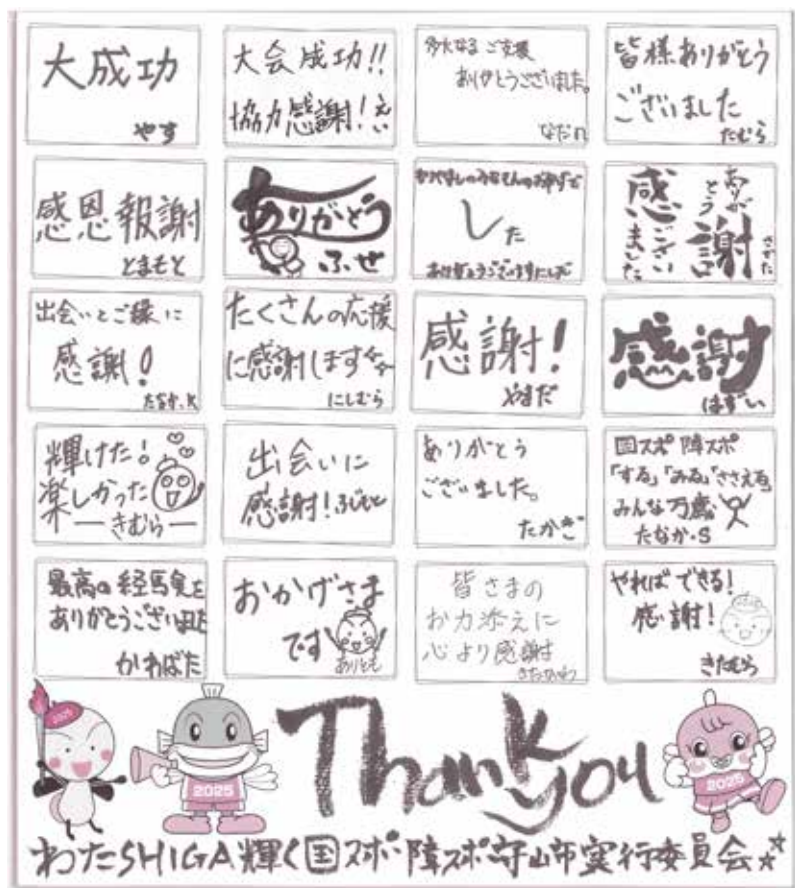 大成功
やす
大会成功!!
協力感謝!えい
多大なるご支援
ありがとうございました。
皆様ありがとう
ございました
たむら
感恩報謝
とまもと
ありがとう
ふせ
した
ありがとう
ございました
感謝
さがた
出会いとご縁に
感謝!
たなか.K
たくさんの応援
に感謝します
にしむら
感謝!
やまだ
感謝
輝けた!
楽しかった
―きむら―
出会いに
感謝!ふじもと
ありがとう
ございました。
たかぎ
国スポ 障スポ
「する」「みる」「ささえる」
みんな万歳
たなか・S
最高の経験を
ありがとうございました
かわばた
おかげさま
です
ありとも
皆さまの
お力添えに
心より感謝
やればできる!
感謝!
きたむら
2025
2025
Thank you
2025
わたSHIGA輝く国スポ・障スポ守山市実行委員会